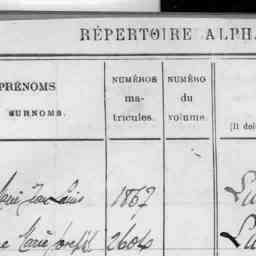 RÉPERTOIRE ALPHA
PRÉNOMS
SURNOMS.
NUMÉROS
ma-
tricules.
NUMÉRO
du
volume.
(Il doi
1862
Marie Joseph
2604